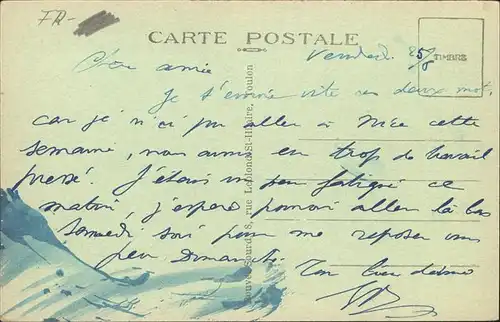 FR-
CARTE POSTALE
TIMBRE
Vendredi 25/8
Chère amie
Je t'envoie vite ces deux mots,
car je n'ai pu aller à Nice cette
semaine, nous avons eu trop de travail
pressé. J'étais un peu fatigué ce
matin, j'espère pouvoir aller là bas
Samedi soir pour me reposer un
peu Dimanche.
Ton bien dévoué
rue Leblond St-Hilaire, Toulon